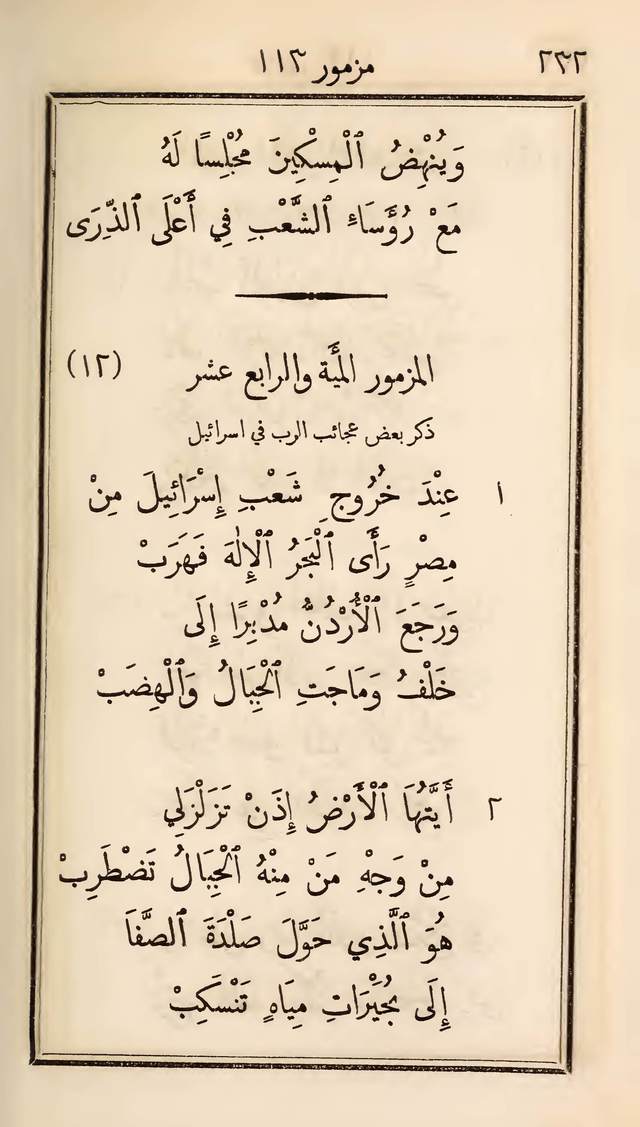 ٢٣٢ مزمور ١١٣
وَيُنْهِضُ ٱلْمِسْكِينَ مُجْلِسًا لَهُ
مَعْ رُؤَسَاءِ ٱلشَّعْبِ فِي أَعْلَى ٱلذِّرَى
المزمور المئَة والرابع عشر (١٢)
ذكر بعض عجائب الرب في اسرائيل
١ عِنْدَ خُرُوجِ شَعْبِ إِسْرَائِيلَ مِنْ
مِصْرٍ رَأَى ٱلْبَحْرُ ٱلْإِلٰهَ فَهَرَبْ
وَرَجَعَ ٱلْأُرْدُنُّ مُدْبِرًا إِلَى
خَلْفُ وَمَاجَتِ ٱلْجِبَالُ وَٱلْهِضَبْ
٢ أَيَّتُهَا ٱلْأَرْضُ إِذَنْ تَزَلْزَلِي
مِنْ وَجْهِ مَنْ مِنْهُ ٱلْجِبَالُ تَضْطَرِبْ
هُوَ ٱلَّذِي حَوَّلَ صَلْدَةَ ٱلصَّفَا
إِلَى بُحَيْرَاتِ مِيَاهٍ تَنْسَكِبْ